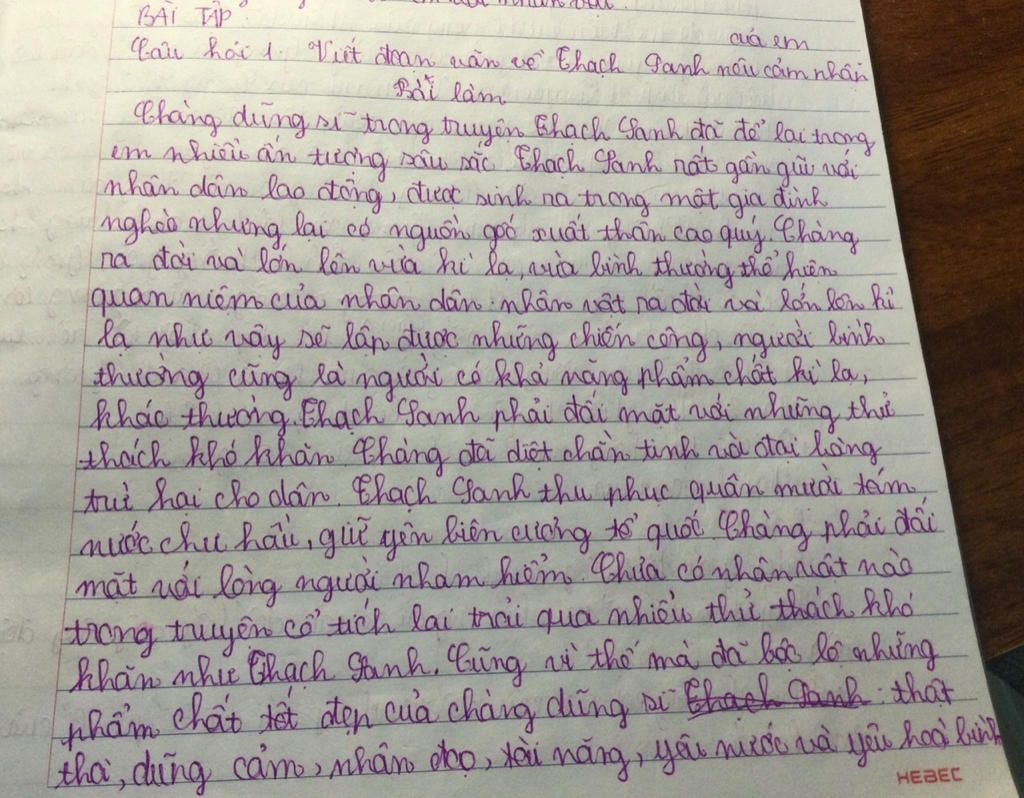 BÀI TẬP
Câu hỏi 1. Viết đoạn văn về Thạch Sanh nêu cảm nhận của em
Bài làm
Chàng dũng sĩ trong truyện Thạch Sanh đã để lại trong
em nhiều ấn tượng sâu sắc. Thạch Sanh rất gần gũi với
nhân dân lao động, được sinh ra trong một gia đình
nghèo nhưng lại có nguồn gốc xuất thân cao quý. Chàng
ra đời và lớn lên vừa kì lạ, vừa bình thường thể hiện
quan niệm của nhân dân: nhân vật ra đời và lớn lơn kì
lạ như vậy sẽ lập được những chiến công, người bình
thường cũng là người có khả năng phẩm chất kì lạ,
khác thường. Thạch Sanh phải đối mặt với những thử
thách khó khăn. Chàng đã diệt chằn tinh và đại bàng
trừ hại cho dân. Thạch Sanh thu phục quân mười tám
nước chư hầu, giữ yên biên cương tổ quốc. Chàng phải đối
mặt với lòng người nham hiểm. Chưa có nhân vật nào
trong truyện cổ tích lại trải qua nhiều thử thách khó
khăn như Thạch Sanh. Cũng vì thế mà đã bộc lộ những
phẩm chất tốt đẹp của chàng dũng sĩ Thạch Sanh: thật
thà, dũng cảm, nhân đạo, tài năng, yêu nước và yêu hoà bình
HEBEC